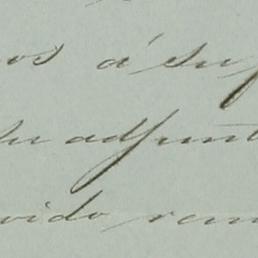 os á su
su adjunt
vido rem